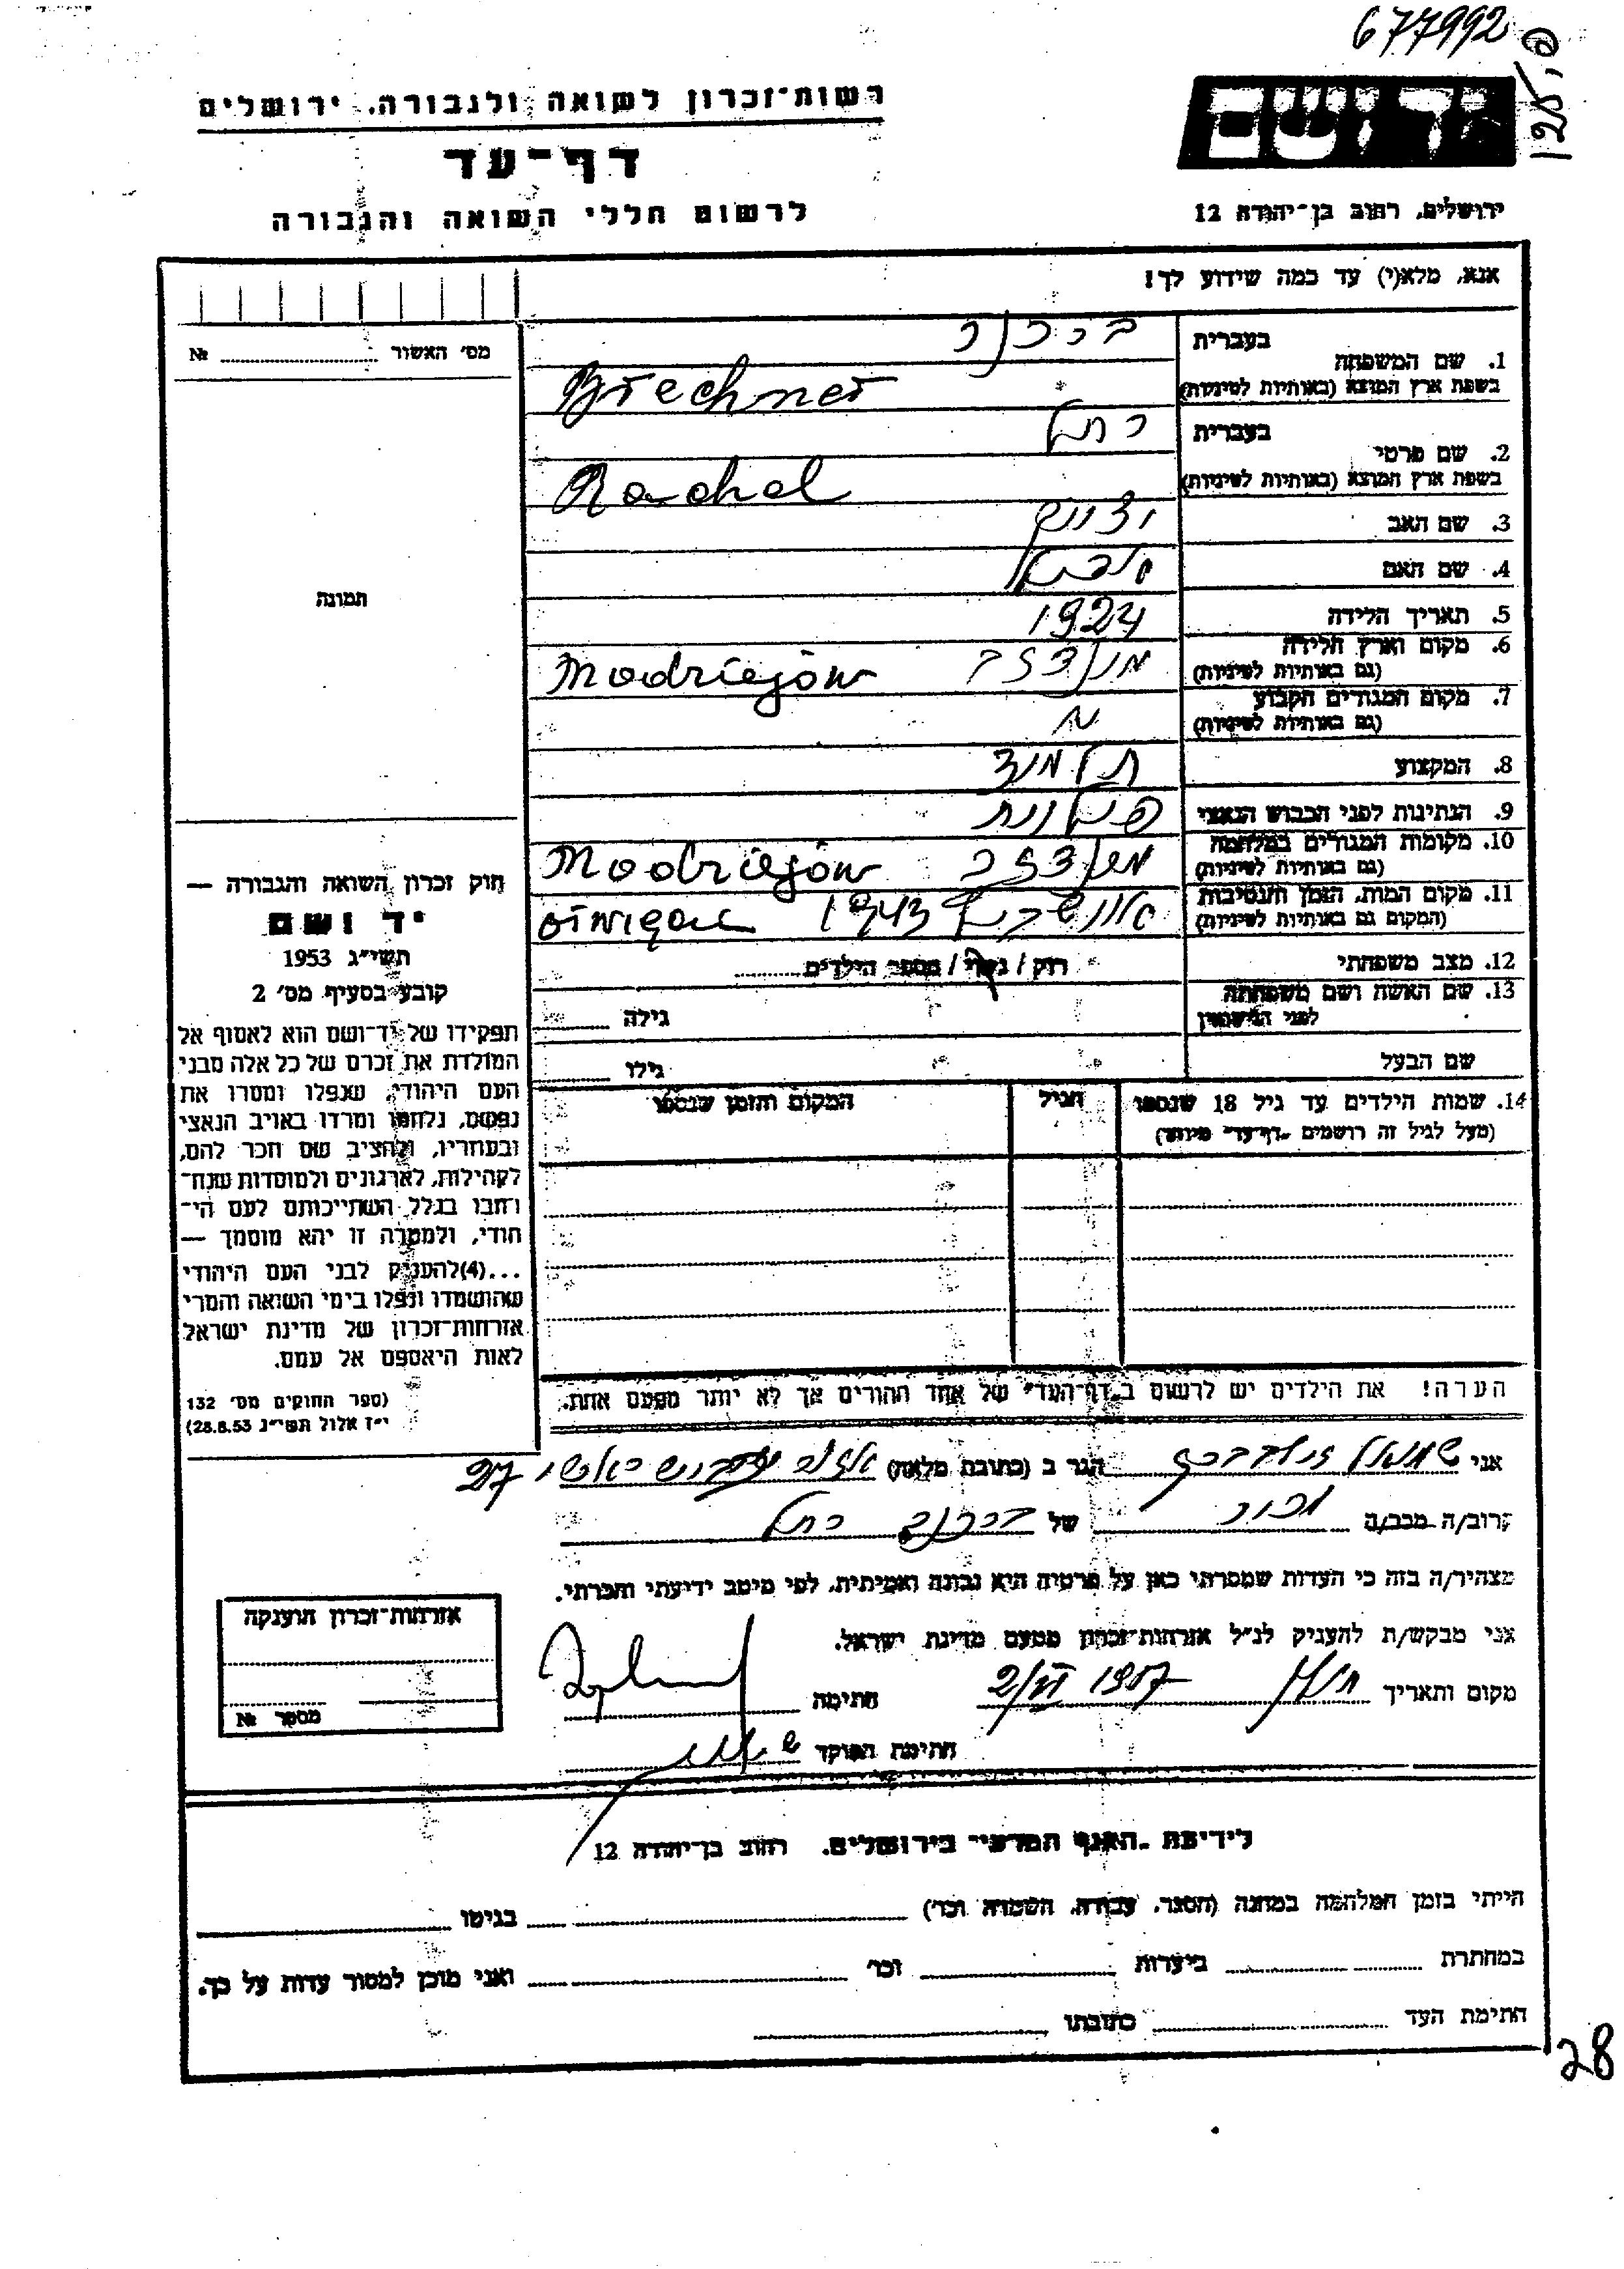 677992
רשות־זכרון לשואה ולגבורה, ירושלים
דף־עד
לרשום חללי השואה והגבורה
ירושלים, רחוב בן־יהודה 12
אנא, מלא(י) עד כמה שידוע לך!
מס' האשור № 
1. שם המשפחה בעברית ברכנר
בשפת ארץ המוצא (באותיות לטיניות) Brechner
2. שם פרטי בעברית רחל
בשפת ארץ המוצא (באותיות לטיניות) Rachel
3. שם האב
4. שם האם
5. תאריך הלידה 1924
6. מקום וארץ הלידה (גם באותיות לטיניות) Modrzejów
7. מקום המגורים הקבוע (גם באותיות לטיניות)
8. המקצוע תלמיד
9. הנתינות לפני הכבוש הנאצי פולנית
10. מקומות המגורים במלחמה (גם באותיות לטיניות) Modrzejów
11. מקום המות, הזמן והנסיבות (המקום גם באותיות לטיניות) אושביץ 1943
12. מצב משפחתי רווק / נשוי / מספר הילדים
13. שם האשה ושם משפחתה לפני הנישואין גילה
שם הבעל גילו
14. שמות הילדים עד גיל 18 שנספו הגיל המקום והזמן שנספו
(מעל לגיל זה רושמים "דף־עד" מיוחד)
הערה! את הילדים יש לרשום ב"דף־העד" של אחד ההורים אך לא יותר מפעם אחת.
תמונה
חוק זכרון השואה והגבורה —
יד ושם
תשי"ג 1953
קובע בסעיף מס' 2
תפקידו של יד־ושם הוא לאסוף אל
המולדת את זכרם של כל אלה מבני
העם היהודי, שנפלו ומסרו את
נפשם, נלחמו ומרדו באויב הנאצי
ובעוזריו, ולהציב שם וזכר להם,
לקהילות, לארגונים ולמוסדות שנח־
רבו בגלל השתייכותם לעם הי־
הודי, ולמטרה זו יהא מוסמך —
...(4)להעניק לבני העם היהודי
שהושמדו ונפלו בימי השואה והמרי
אזרחות־זכרון של מדינת ישראל
לאות היאספם אל עמם.
(ספר החוקים מס' 132
י"ז אלול תשי"ג 28.8.53)
אני שמואל זילברברג הגר ב (כתובת מלאה) 27
קרוב/ה מכר/ה של ברכנר רחל
מצהיר/ה בזה כי העדות שמסרתי כאן על פרטיה היא נכונה ואמיתית, לפי מיטב ידיעתי והכרתי.
אני מבקש/ת להעניק לנ"ל אזרחות־זכרון מטעם מדינת ישראל.
מקום ותאריך 2/VI 1957 חתימה
חתימת הפוקד
אזרחות־זכרון הוענקה
מספר №
לידיעת "האגף המדעי" בירושלים, רחוב בן־יהודה 12
הייתי בזמן המלחמה במחנה (הסגר, עבודה, השמדה וכר') בגיטו
במחתרת ביערות וכר' ואני מוכן למסור עדות על כך.
חתימת העד כתובתו
28